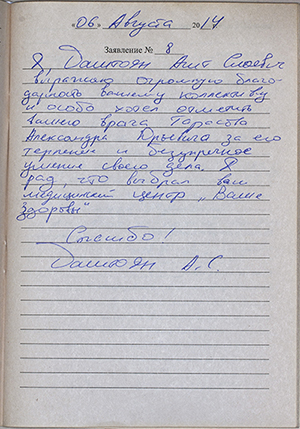 « 06 » Августа 2014
Заявление № 8
Я, Даштоян Амт Смоевич
выражаю огромную благо-
дарность вашему коллективу
и особо хотел отметить
вашего врача Тараство
Александра Юрьевича за его
терпение и безупречное
умение своего дела. Я
рад, что выбрал ваш
медицинский центр „Ваше
здоровье"
Спасибо!
Даштоян А.С.